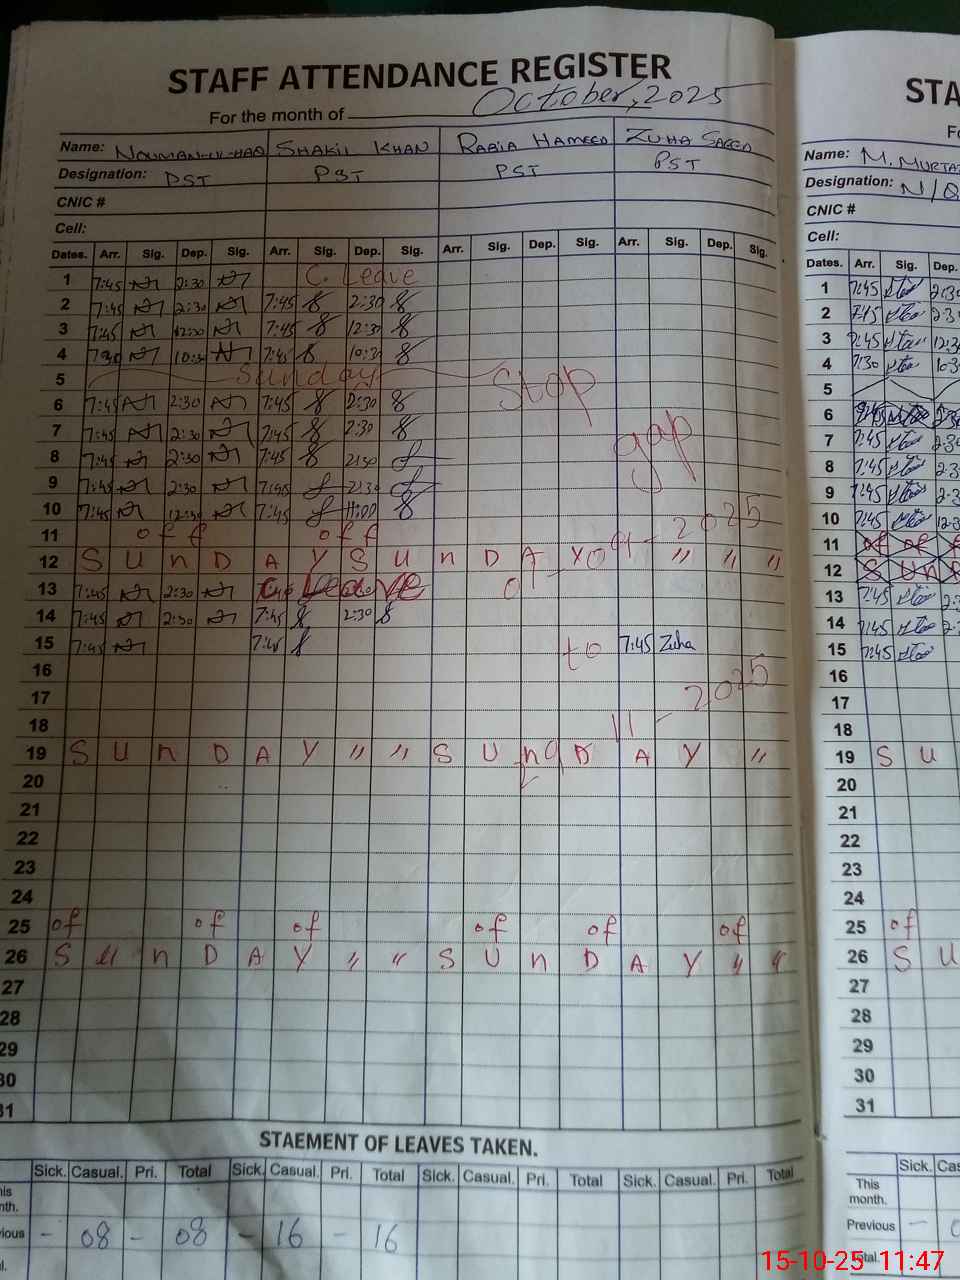 STAFF ATTENDANCE REGISTER
For the month of October, 2025
Name: NOUMAN-UL-HAQ SHAKIL KHAN RABIA HAMEED ZUHA SAEED
Designation: PST PST PST PST
CNIC #
Cell:
Dates. Arr. Sig. Dep. Sig. Arr. Sig. Dep. Sig. Arr. Sig. Dep. Sig. Arr. Sig. Dep. Sig.
1 7:45 2:30 C. Leave
2 7:45 2:30 7:45 2:30
3 7:45 12:30 7:45 12:30
4 7:30 10:30 7:45 10:30
5 Sunday Stop
6 7:45 2:30 7:45 2:30
7 7:45 2:30 7:45 2:30 gap
8 7:45 2:30 7:45 2:30
9 7:45 2:30 7:45 2:30
10 7:45 12:30 7:45
11 off off
12 S U n D A Y S U n D A Y " " "
01-09-2025
13 7:45 2:30 C. Leave
14 7:45 2:30 7:45 2:30
15 7:45 7:45 to 7:45 Zuha
16
17
18
19 S U n D A Y " " S U n D A Y "
20
21
22
23
24
25 of of of of of of
26 S U n D A Y " " S U n D A Y " "
27
28
29
30
31
STAEMENT OF LEAVES TAKEN.
Sick. Casual. Pri. Total Sick. Casual. Pri. Total Sick. Casual. Pri. Total Sick. Casual. Pri. Total
- 08 - 08 - 16 - 16
STA
Name: M. MURTAZ
Designation: N/Q
CNIC #
Cell:
Dates. Arr. Sig. Dep.
1 7:45 2:30
2 7:45 2:30
3 7:45 12:30
4 7:30 10:3
5
6
7 7:45 2:30
8 7:45 2:3
9 7:45 2:3
10 7:45 12:3
11 of of of
12 S U n D
13 7:45 2:3
14 7:45 2:3
15 7:45
16
17
18
19 S U
20
21
22
23
24
25 of
26 S U
27
28
29
30
31
Sick. Cas
This month.
Previous -
Total.
15-10-25 11:47